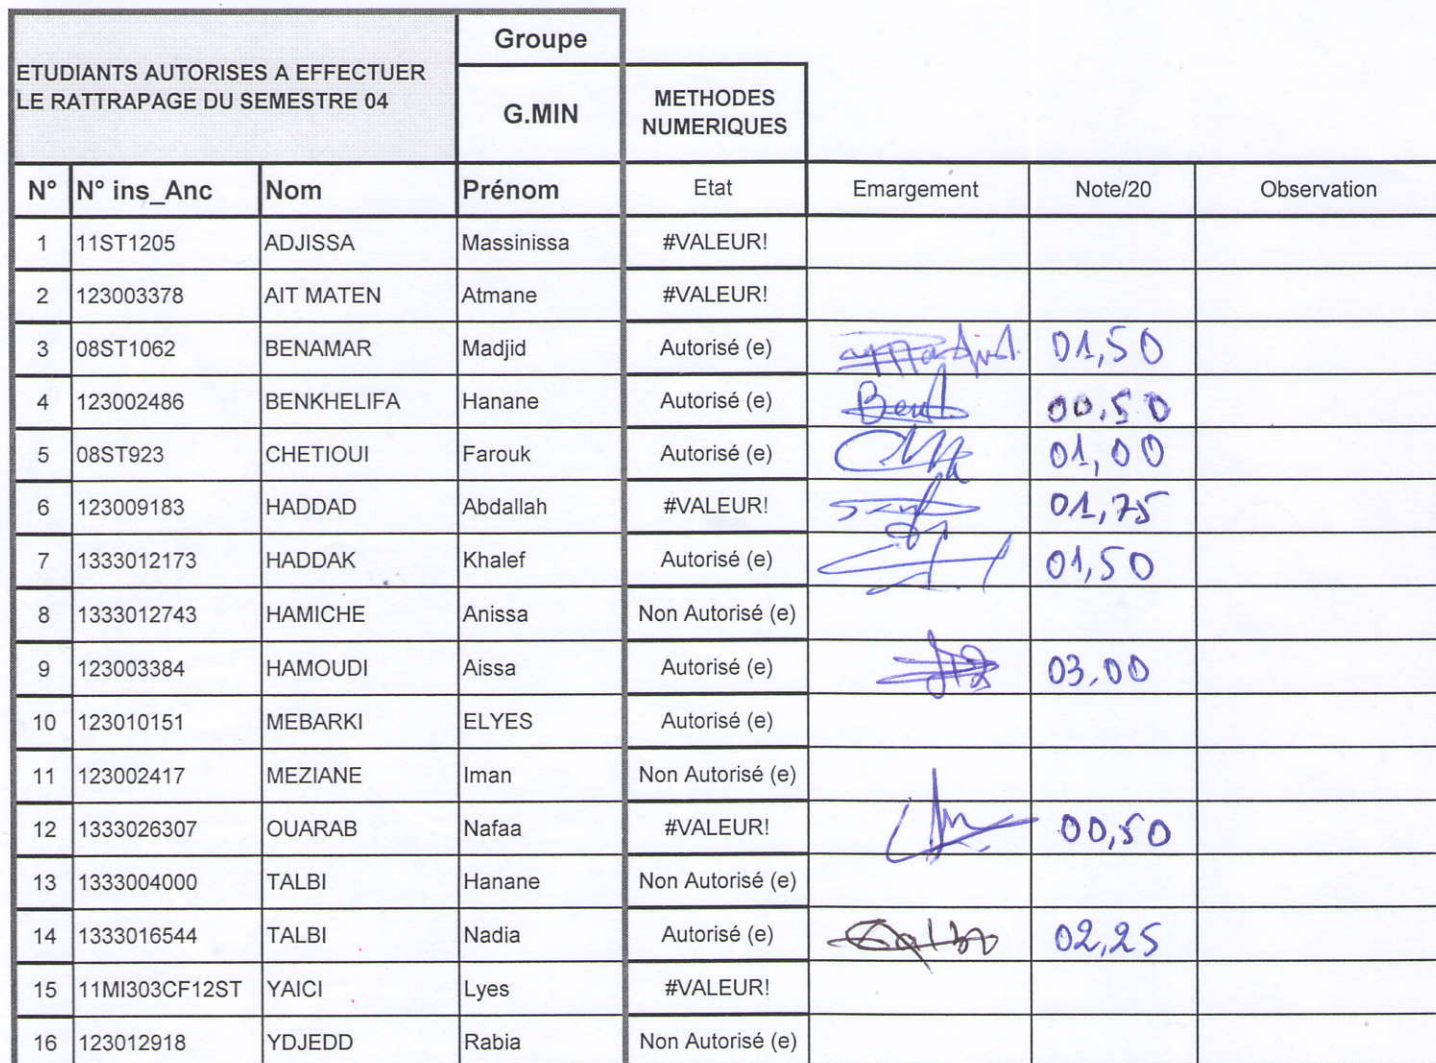 Groupe
ETUDIANTS AUTORISES A EFFECTUER
LE RATTRAPAGE DU SEMESTRE 04
G.MIN
METHODES
NUMERIQUES
N° N° ins_Anc Nom Prénom Etat Emargement Note/20 Observation
1 11ST1205 ADJISSA Massinissa #VALEUR!
2 123003378 AIT MATEN Atmane #VALEUR!
3 08ST1062 BENAMAR Madjid Autorisé (e) 01,50
4 123002486 BENKHELIFA Hanane Autorisé (e) 00,50
5 08ST923 CHETIOUI Farouk Autorisé (e) 01,00
6 123009183 HADDAD Abdallah #VALEUR! 01,75
7 1333012173 HADDAK Khalef Autorisé (e) 01,50
8 1333012743 HAMICHE Anissa Non Autorisé (e)
9 123003384 HAMOUDI Aissa Autorisé (e) 03,00
10 123010151 MEBARKI ELYES Autorisé (e)
11 123002417 MEZIANE Iman Non Autorisé (e)
12 1333026307 OUARAB Nafaa #VALEUR! 00,50
13 1333004000 TALBI Hanane Non Autorisé (e)
14 1333016544 TALBI Nadia Autorisé (e) 02,25
15 11MI303CF12ST YAICI Lyes #VALEUR!
16 123012918 YDJEDD Rabia Non Autorisé (e)